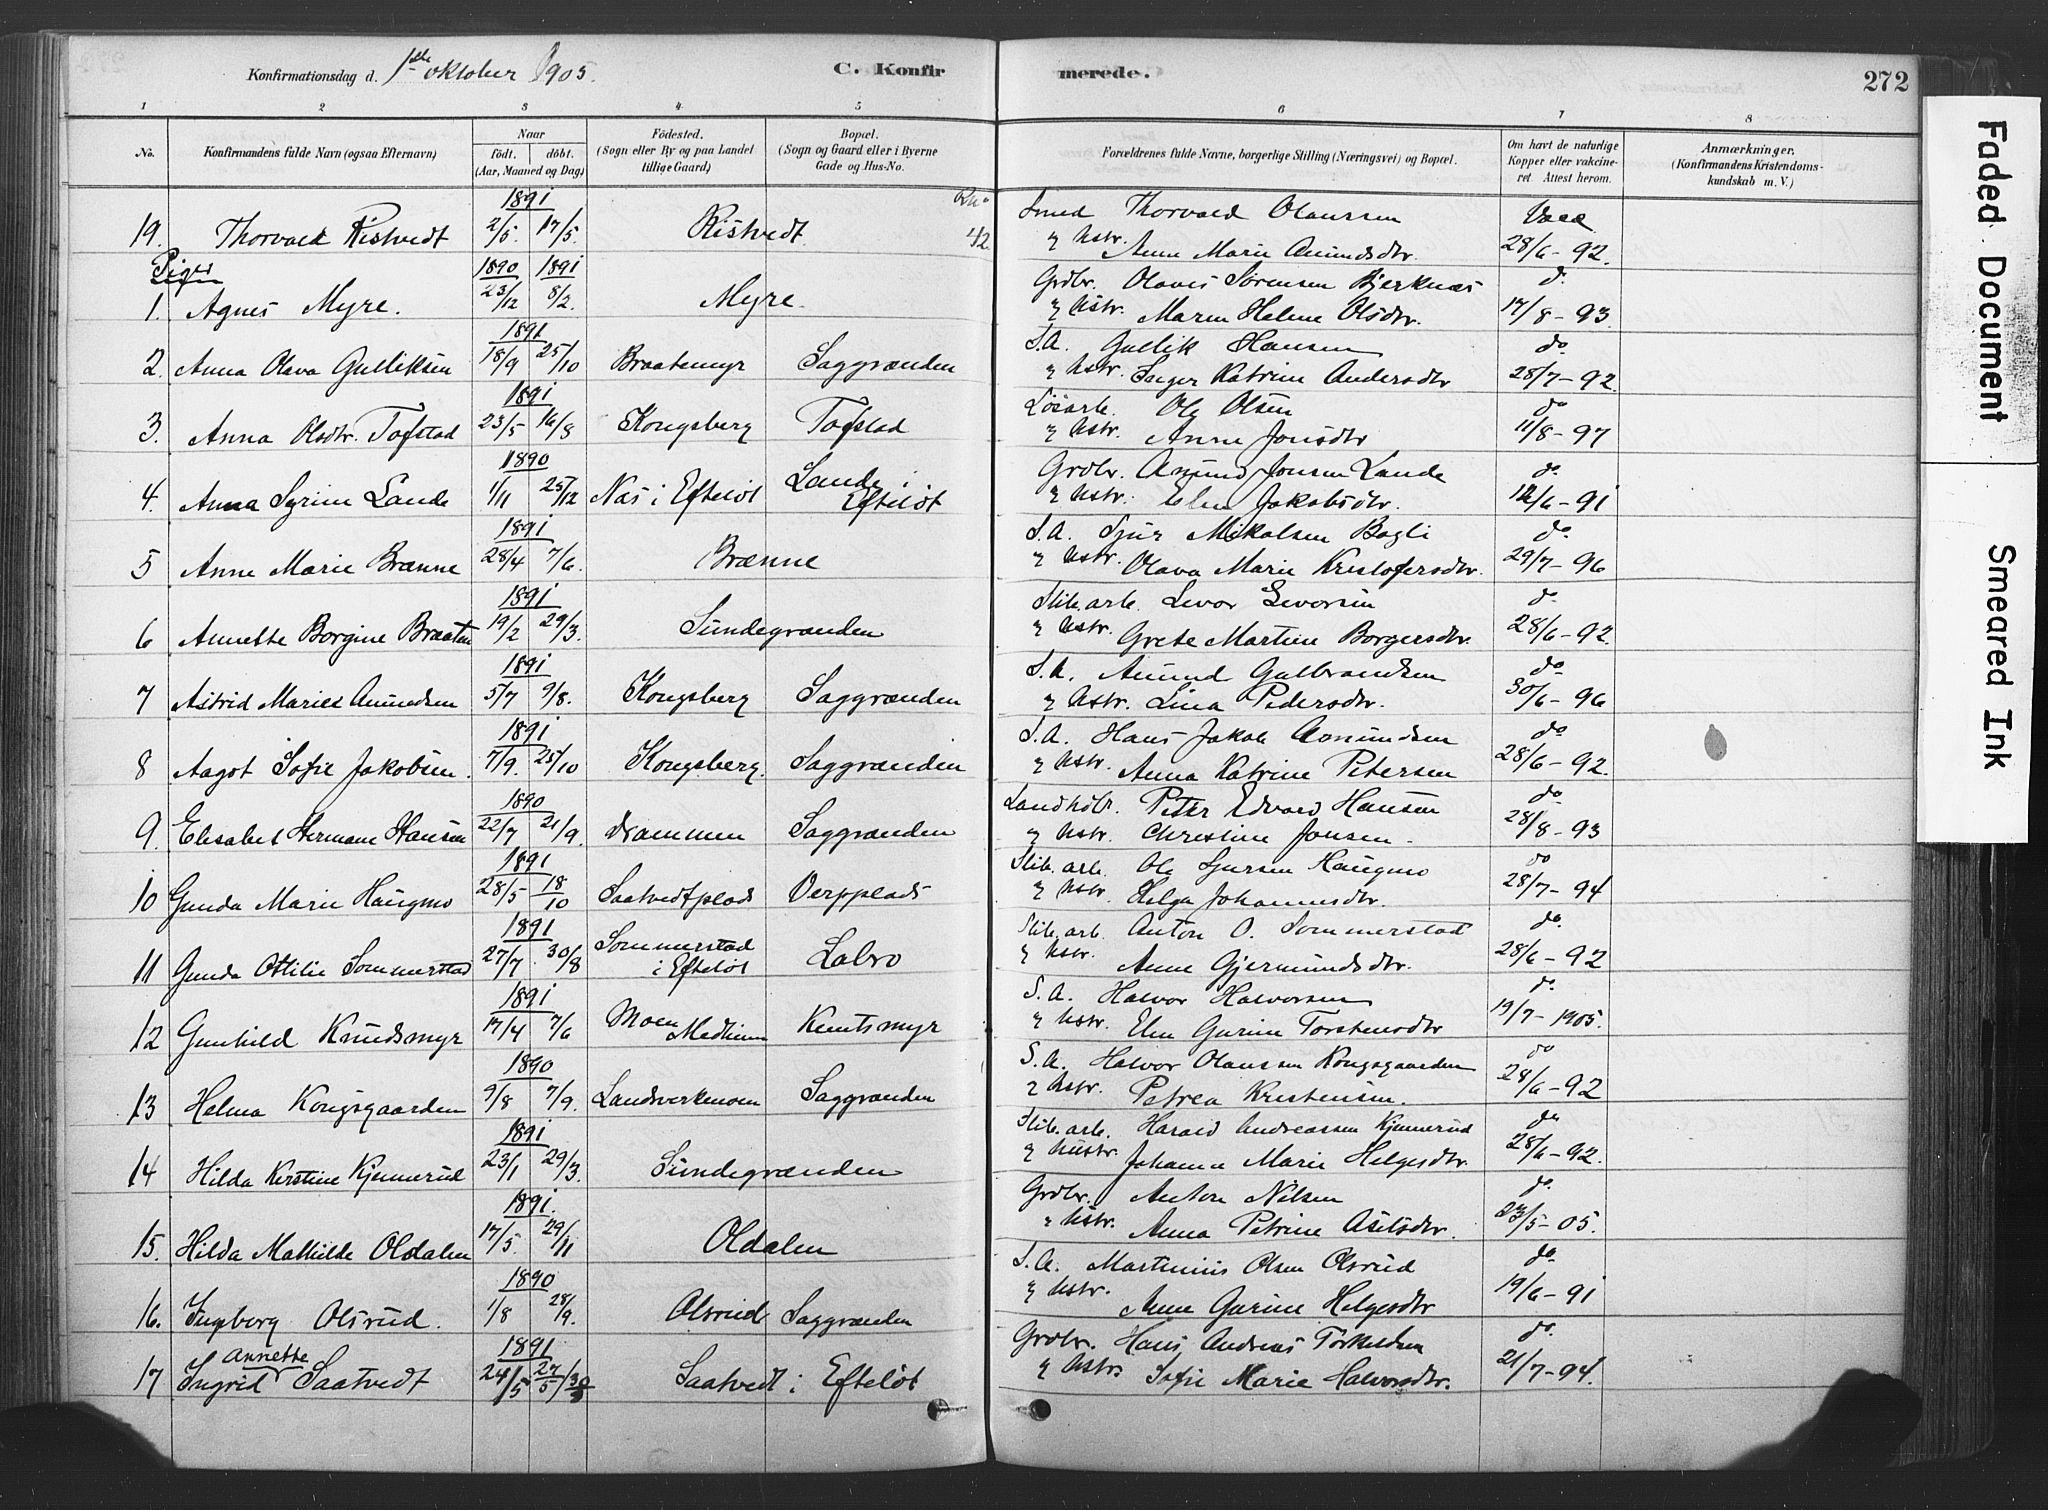 Konfirmationsdag d. 1ste oktober 1905.
C. Konfirmerede.
272
1 2 3 4 5 6 7 8
No. Konfirmandens fulde Navn (ogsaa Efternavn) Naar födt. döbt. (Aar, Maaned og Dag) Födested. (Sogn eller By og paa Landet tillige Gaard) Bopæl. (Sogn og Gaard eller i Byerne Gade og Hus-No. Forældrenes fulde Navne, borgerlige Stilling (Næringsvei) og Bopæl. Om havt de naturlige Kopper eller vakcineret. Attest herom. Anmærkninger. (Konfirmandens Kristendomskundskab m. V.)
1891 Smed Thorvald Olaussen Vacc
19. Thorvald Ristvedt 2/5. 17/5. Ristvedt 42 & hstr. Anne Marie Amundsdtr. 28/6-92.
Piger
1890 1891 Grdbr. Olaves Sørensen Bjerknæs do.
1. Agnes Myre. 23/12 8/2. Myre. & hstr. Maren Helene Olsdtr. 17/8-93.
1891 S.A. Gullik Hansen do.
2. Anna Olava Gulliksen 18/9 25/10 Braatemyr Saggrænden & hstr. Inger Katrine Andersdtr 28/7-92.
1891 Løsarb. Ole Olsen do
3. Anna Olsdtr. Tofstad 23/5 16/8 Kongsberg Tofstad & hstr. Anne Jonsdtr 11/8-97
1890 Grdbr. Amund Jonsen Lande do.
4. Anna Syrine Lande 1/11 25/12 Næs i Efteløt Lande i Efteløt & hstr. Elen Jakobsdtr. 12/6-91
1891 S.A. Sjur Mikalsen Bagli do
5 Anne Marie Brænne 28/4 7/6. Brænne & hstr. Olava Marie Kristofersdtr. 29/7-96
1891 Slib.arb. Levor Levorsen do
6 Annette Borgine Braaten 19/2 29/3. Sundegrænden & hstr. Grete Martine Borgersdtr. 28/6-92.
1891 S.A. Amund Gulbrandsen do
7 Astrid Marie Amundsen 5/7 9/8. Kongsberg Saggrænden & hstr. Lina Pedersdtr. 30/6-96
1891 S.A. Hans Jakob Amundsen do
8 Aagot Sofie Jakobsen. 7/9. 25/10 Kongsberg. Saggrænden & hstr. Anna Katrine Petersen 28/6-92.
1890 Landhdlr. Peter Edvard Hansen do
9. Elisabet Hermane Hansen 22/7 21/9. Drammen Saggrænden & hstr. Christine Jonsen. 28/8-93
1891 Slib.arb. Ole Sjursen Haugmo do
10 Gunda Marie Haugmo 28/5 18/10 Saatvedtplads Verpplads & hstr. Helga Johannesdtr. 28/7-94
1891 Slib.arb. Anton O. Sommerstad do.
11 Gunda Ottilie Sommerstad 27/7. 30/8 Sommerstad i Efteløt Labro & hstr. Anne Gjermundsdtr. 28/6-92
1891 S.A. Halvor Halvorsen do.
12 Gunhild Knudsmyr 17/4 7/6 Moen Medheim Knutsmyr & hstr. Elen Gurine Torstensdtr 19/7-1905.
1890 S.A. Halvor Olaussen Kongsgaarden do
13 Helma Kongsgaarden 9/8 7/9. Landsverkmoen Saggrænden & hstr. Petrea Kristensen. 28/6-92
1891 Slib.arb. Harald Andreassen Kjennerud do
14 Hilda Kirstine Kjennerud 23/1 29/3. Sundegrænden & hustr. Johanna Marie Helgesdtr. 28/6-92.
1891. Grdbr. Anton Nilsen do.
15. Hilda Mathilde Oldalen 17/5. 29/11 Oldalen & hstr. Anna Petrine Asletsdtr. 23/5-05.
1890 S.A. Martinius Olsen Olsrud do.
16. Ingborg Olsrud. 1/8 28/9. Olsrud Saggrænden & hstr. Anne Gurine Helgesdtr 19/6-91
1891 Grdbr. Hans Andreas Torkeldsen do.
17 Ingrid Annette Saatvedt 24/5 27/5 Saatvedt i Efteløt & hstr. Sofie Marie Halvorsdtr. 21/7-94.
Faded Document
Smeared Ink